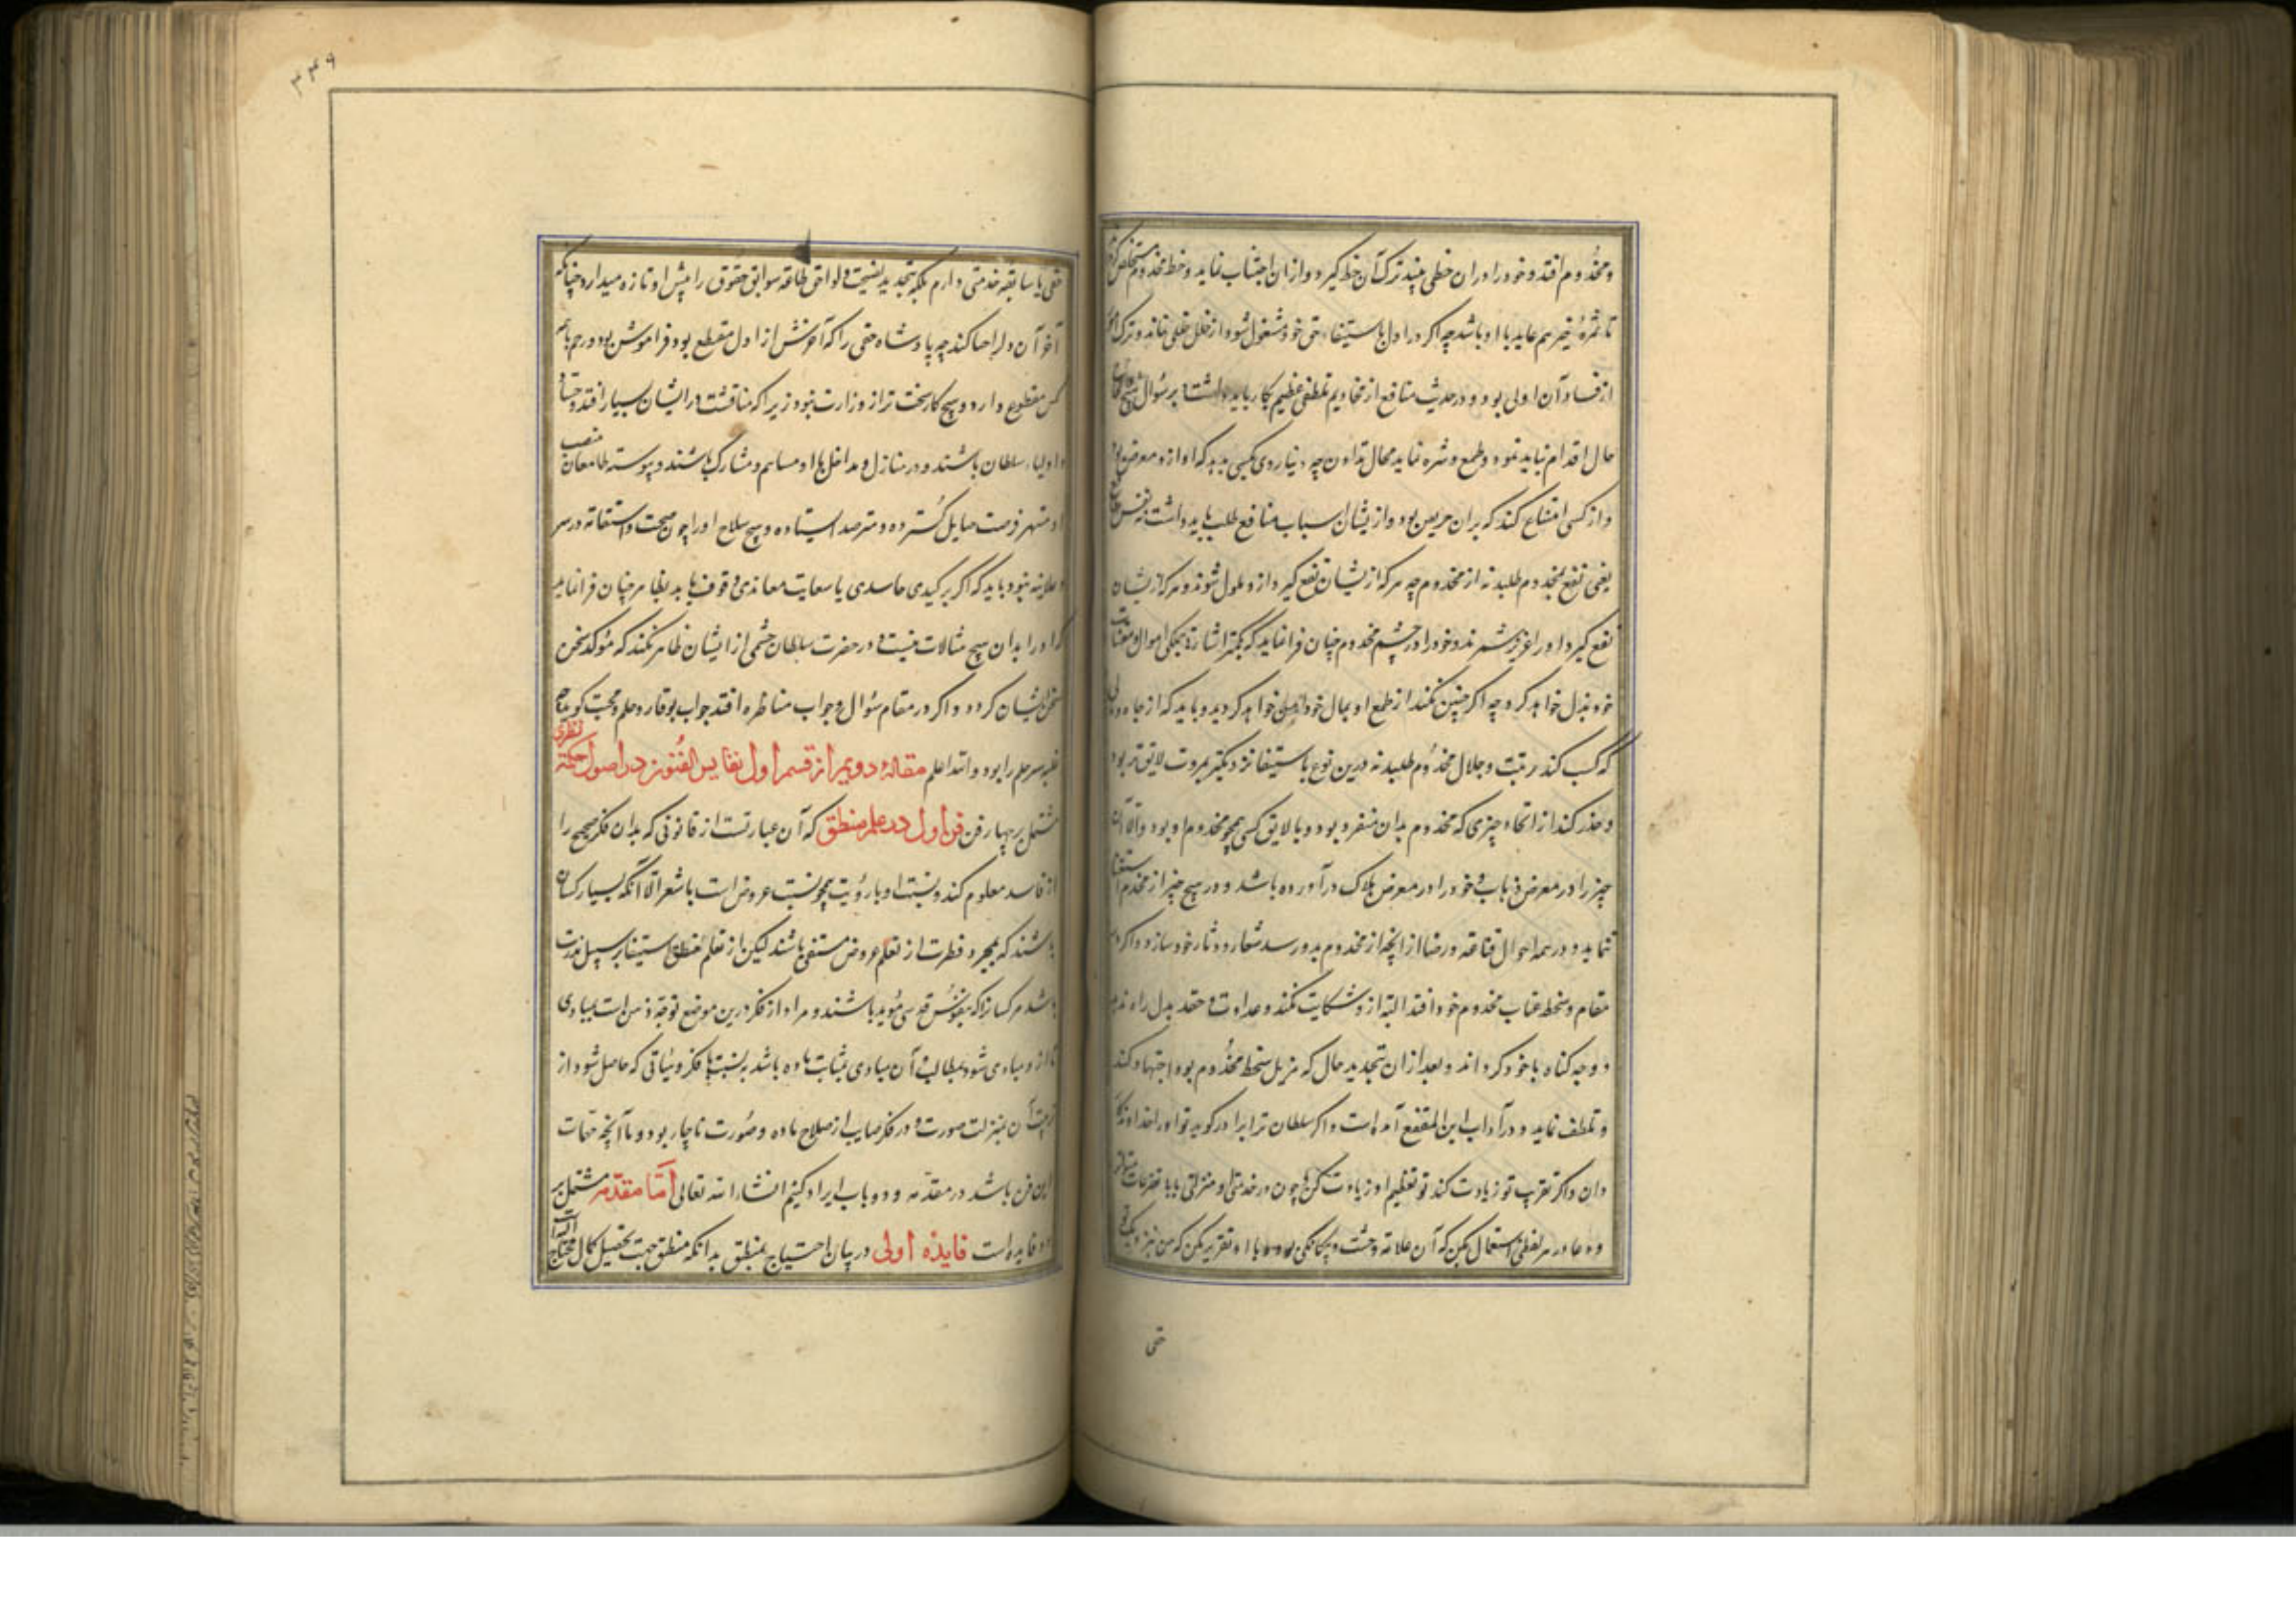 و مخدوم افتد و خود را در ان حظی بیند ترک آن حظ گیرد و از ان اجتناب نماید و حظ مخدوم مستخلص
تا ثمرهٔ خیر هم عاید با او باشد چه اکر در اول باستیفاء حق خود مشغول شود از خلل خلی نماند و ترک
از فساد آن اولی بود و در حدیث منافع از مخادیم تلطفی عظیم بکار باید داشت و بر سؤال هیچ
حال اقدام نباید نمود و طمع و شره نماید مجال نداون چه دنیا روی بکسی نهد که او ازو معرض بود
و از کسی امتناع کند که بران حریص بود و ازیشان اسباب منافع طلب باید داشت نه نفس
یعنی نفع بمخدوم طلبد نه از مخدوم چه هرکه ازیشان نفع گیرد ازو ملول شوند و هرکه ازیشان
نفع گیرد او را عزیز شمرند و خود را در چشم مخدوم چنان فرا نماید که بکمتر اشارة بجملکی اموال و مقتنیات
خود بذل خواهد کرد چه اکر چنین نکند از طمع او بمال خود ایمن خواهد کردید و باید که از جاه و مالی
که کسب کند رتبت و جلال مخدوم طلبد نه درین نوع باستیفا نزدیکتر بمروت لایق تر بود
و حذر کند از اتخاذ چیزی که مخدوم بدان منفرد بود و یا لایق کسی همچو مخدوم او بود و الا آن
چیز را در معرض ذهاب و خود را در معرض هلاک درآورده باشد و در هیچ چیز از مخدوم استغنا
ننماید و در همه احوال قناعة و رضا از انچه از مخدوم بدو رسد شعار و دثار خود سازد و اکر در
مقام و سخط عتاب مخدوم خود افتد البته ازو شکایت نکند و عداوت و حقد بدل راه ندهد
و وجه کناه با خود کرداند و بعد از ان تجدید حال که مزیل سخط مخدوم بود اجتهاد کند
و تلطف نماید و در آداب ابن المقفع آمده است و اکر سلطان ترا برادر کوید تو او را خداوندکار
دان و اکر تقرب تو زیادت کند تو تعظیم او زیادت کن و چون در خدمت او منزلتی یابی
و دعا در هر لفظی استعمال مکن که آن علامة وحشت و بیکانکی بود و با او تقریر مکن که من نزدیک تو
حقی
۴۴۹
حقی یا سابقه خدمتی دارم بلکه بتجدید نصیحت و لواحق طاعة سوابق حقوق را پیش او تازه میدارد چنانکه
آخر آن اول را احیا کند چه پادشاه حقی را که آخرش از اول منقطع بود فراموش بود و رحم با همه
کس مقطوع دارد و هیچ کار سخت تر از وزارت نبود زیرا که مناقشت در ایشان بسیار افتد و
اولیاء سلطان باشند و در منازل و مداخل با او مساهم و مشارک باشند و پیوسته طامعان منصب
او منتهز فرصت حبایل کسترده و مترصد ایستاده و هیچ سلاح او را چون صحت و استقامة در سر
و علانیه نبود و باید که اکر بر کیدی حاسدی یا سعایت معاندی وقوف یابد بظاهر چنان فرا نماید
که او را بدان هیچ مبالات نیست و در حضرت سلطان خشمی از ایشان ظاهر نکند که مؤکد سخن
سخن ایشان کردد و اکر در مقام سؤال و جواب مناظره افتد جواب بوقار و حلم و حجت کوید چه
غلبه هر حلم را بود و الله اعلم مقالهٔ دویم از قسم اول نفایس الفنون در اصول حکمة نظری
مشتمل بر چهار فن فن اول در علم منطق که آن عبارتست از قانونی که بدان فکر صحیح را
از فاسد معلوم کند و نسبت او با رؤیت همچو نسبت عروض است با شعر الا آنکه بسیار کسان
باشند که بمجرد فطرت از تعلم عروض مستغنی باشند لیکن از تعلم منطق استغنا بر سبیل ندرت
باشد مر کسانرا که بنفوس قدسی مؤید باشند و مراد از فکر درین موضع توجه ذهن است بمبادی
تا از و مبادی شود بمطالب و آن مبادی بمثابت ماده باشد بنسبت با فکر و هیأتی که حاصل شود از
ترتیب آن بمنزلت صورت و در فکر صایب از صلاح ماده و صورت ناچار بود و ما آنچه مهمات
این فن باشد در مقدمه و دو باب ایراد کنیم انشاء الله تعالی اما مقدمه مشتمل بر
دو فایده است فایدهٔ اولی در بیان احتیاج بمنطق بدانکه منطق جهت تحصیل کمال محتاج الیه است